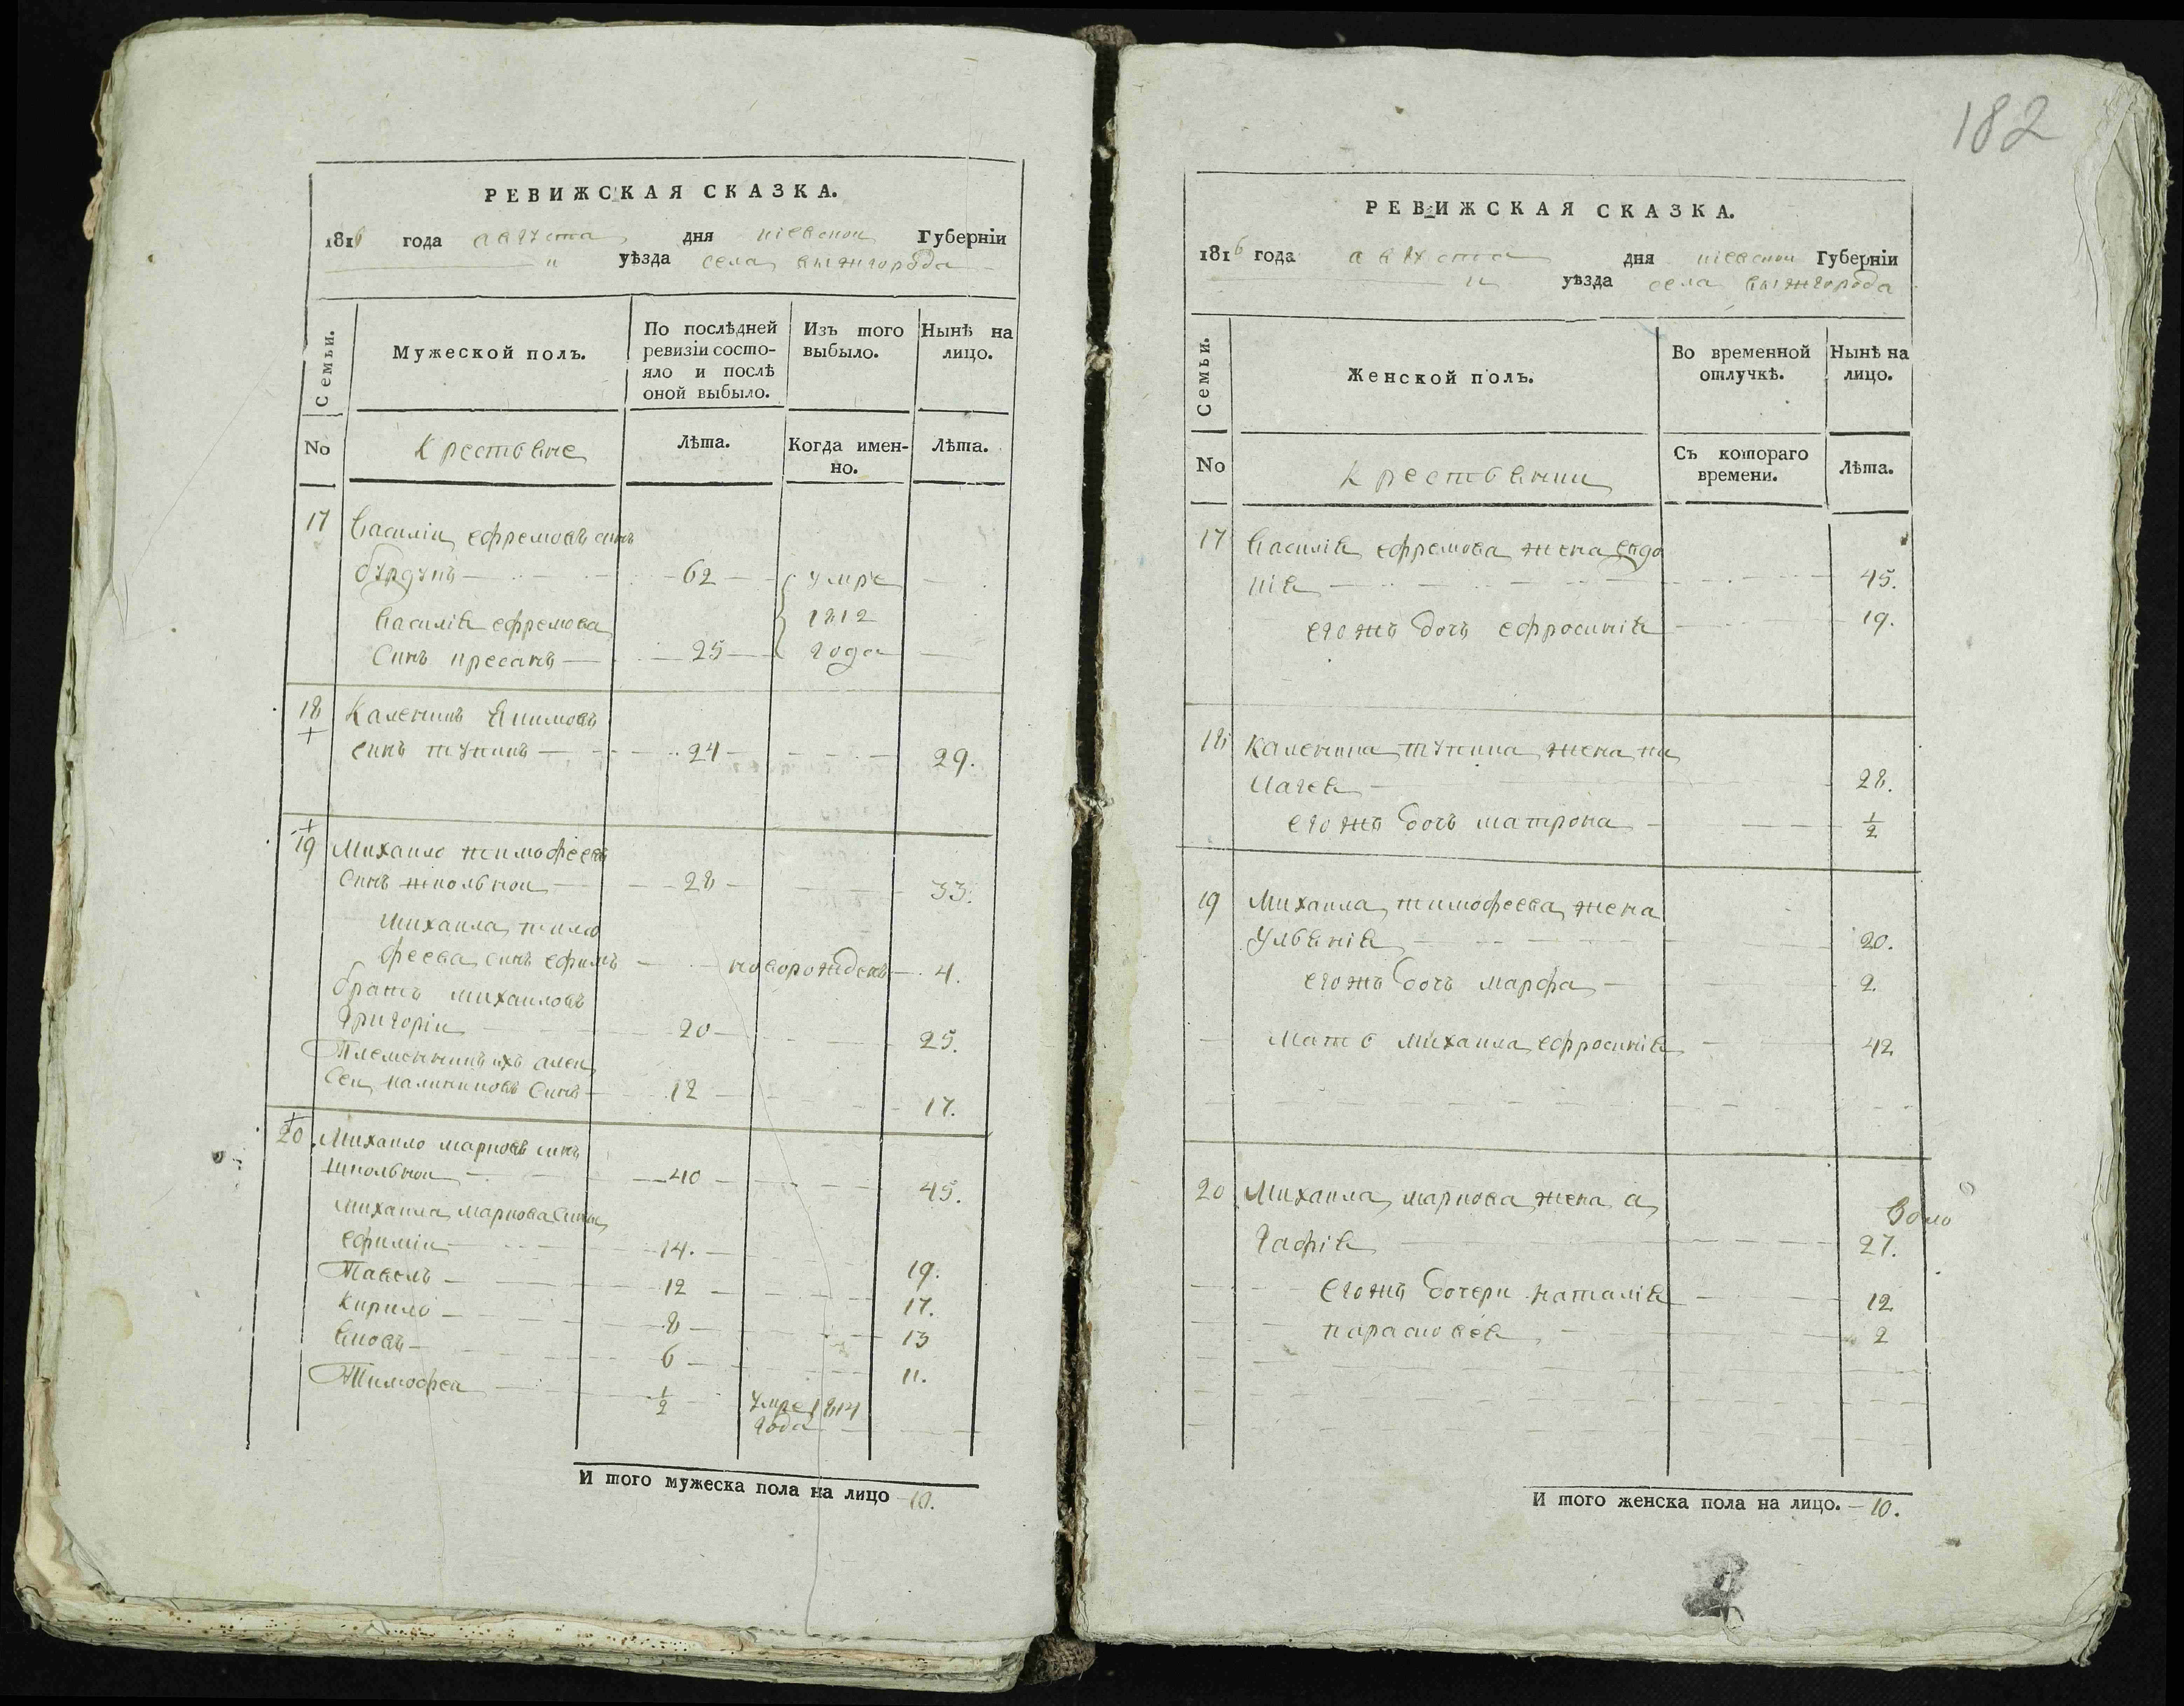 182
РЕВИЖСКАЯ СКАЗКА.
1816 года августа дня киевской Губерніи
" уѣзда села вышгорода
Семьи.
Мужеской полъ.
По послѣдней ревизіи состо-
яло и послѣ
оной выбыло.
Изъ того
выбыло.
Нынѣ на
лицо.
No
Крестьяне
Лѣта.
Когда имен-
но.
Лѣта.
17 Василіи ефремовъ синъ
бурдунъ 62 умре
Василія ефремова 1812
Синъ 25 года
18 Каленикъ Якимовъ
синъ 24 29.
19 Михаило тимофеевъ
синъ школьной 28 33.
михаила тимо
феева синъ ефимъ новорожденъ 4.
братъ михаиловъ
Григоріи 20 25.
Племенникъ ихъ алек
сеи калениковъ Синъ 12 17.
20 Михаило марковъ синъ
школьной 40 45.
михаила маркова Сини
ефиміи 14. 19.
Павелъ 12 17.
Кирило 8 13
Яковъ 6 11.
Тимофеи 1/2 умре 1814
года
И того мужеска пола на лицо 10.
РЕВИЖСКАЯ СКАЗКА.
1816 года августа дня киевской Губерніи
" уѣзда села вышгорода
Семьи.
Женской полъ.
Во временной
отлучкѣ.
Нынѣ на
лицо.
No
Крестьянки
Съ котораго
времени.
Лѣта.
17 Василія ефремова жена евдо
кія 45.
егожъ дочь ефросинія 19.
18 Каленика жена пе
лагея 28.
егожъ дочь матрона 1/2
19 Михаила тимофеева жена
Ульянія 20.
егожъ дочь марфа 2.
Мать михаила ефросинія 42
20 Михаила маркова жена а
гафія 27.
Егожъ дочери наталія 12
параскевея 2
И того женска пола на лицо. 10.